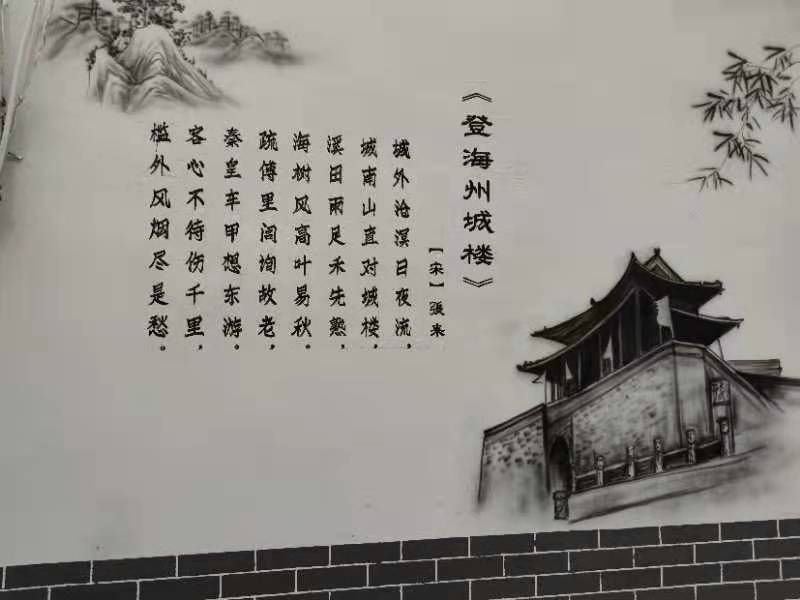 《登海州城楼》
【宋】張耒
城外沧溟日夜流，
城南山直对城楼，
溪田雨足禾先熟，
海树风高叶易秋。
疏傅里闾询故老，
秦皇车甲想东游。
客心不待伤千里，
槛外风烟尽是愁。